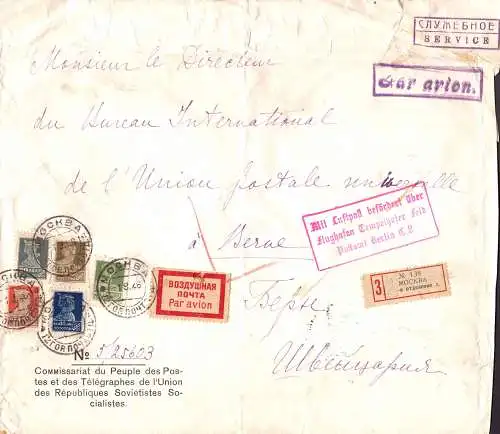 СЛУЖЕБНОЕ
SERVICE
Par avion.
Monsieur le Directeur
du Bureau International
de l'Union Postale universelle
à Berne
Mit Luftpost befördert über
Flughafen Tempelhofer Feld
Postamt Berlin C.2
МОСКВА
МОСКВА
ВОЗДУШНАЯ
ПОЧТА
Par avion
З
№ 138
МОСКВА
Берн
Швейцария
№ 5/25603
Commissariat du Peuple des Pos-
tes et des Télégraphes de l'Union
des Républiques Soviétistes So-
cialistes.